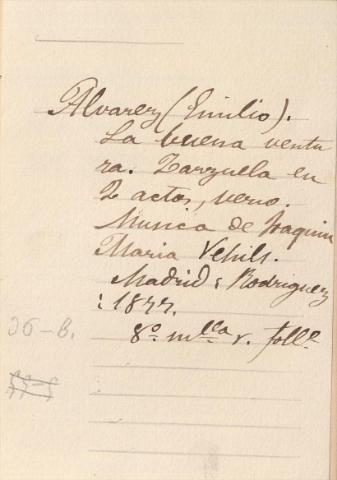 Alvarez (Emilio).
La buena ventu
ra. Zarzuela en
2 actos, verso.
Musica de Joaquin
Maria Vehils.
Madrid: Rodriguez
: 1877.
8º mlla r. folle
36-B.